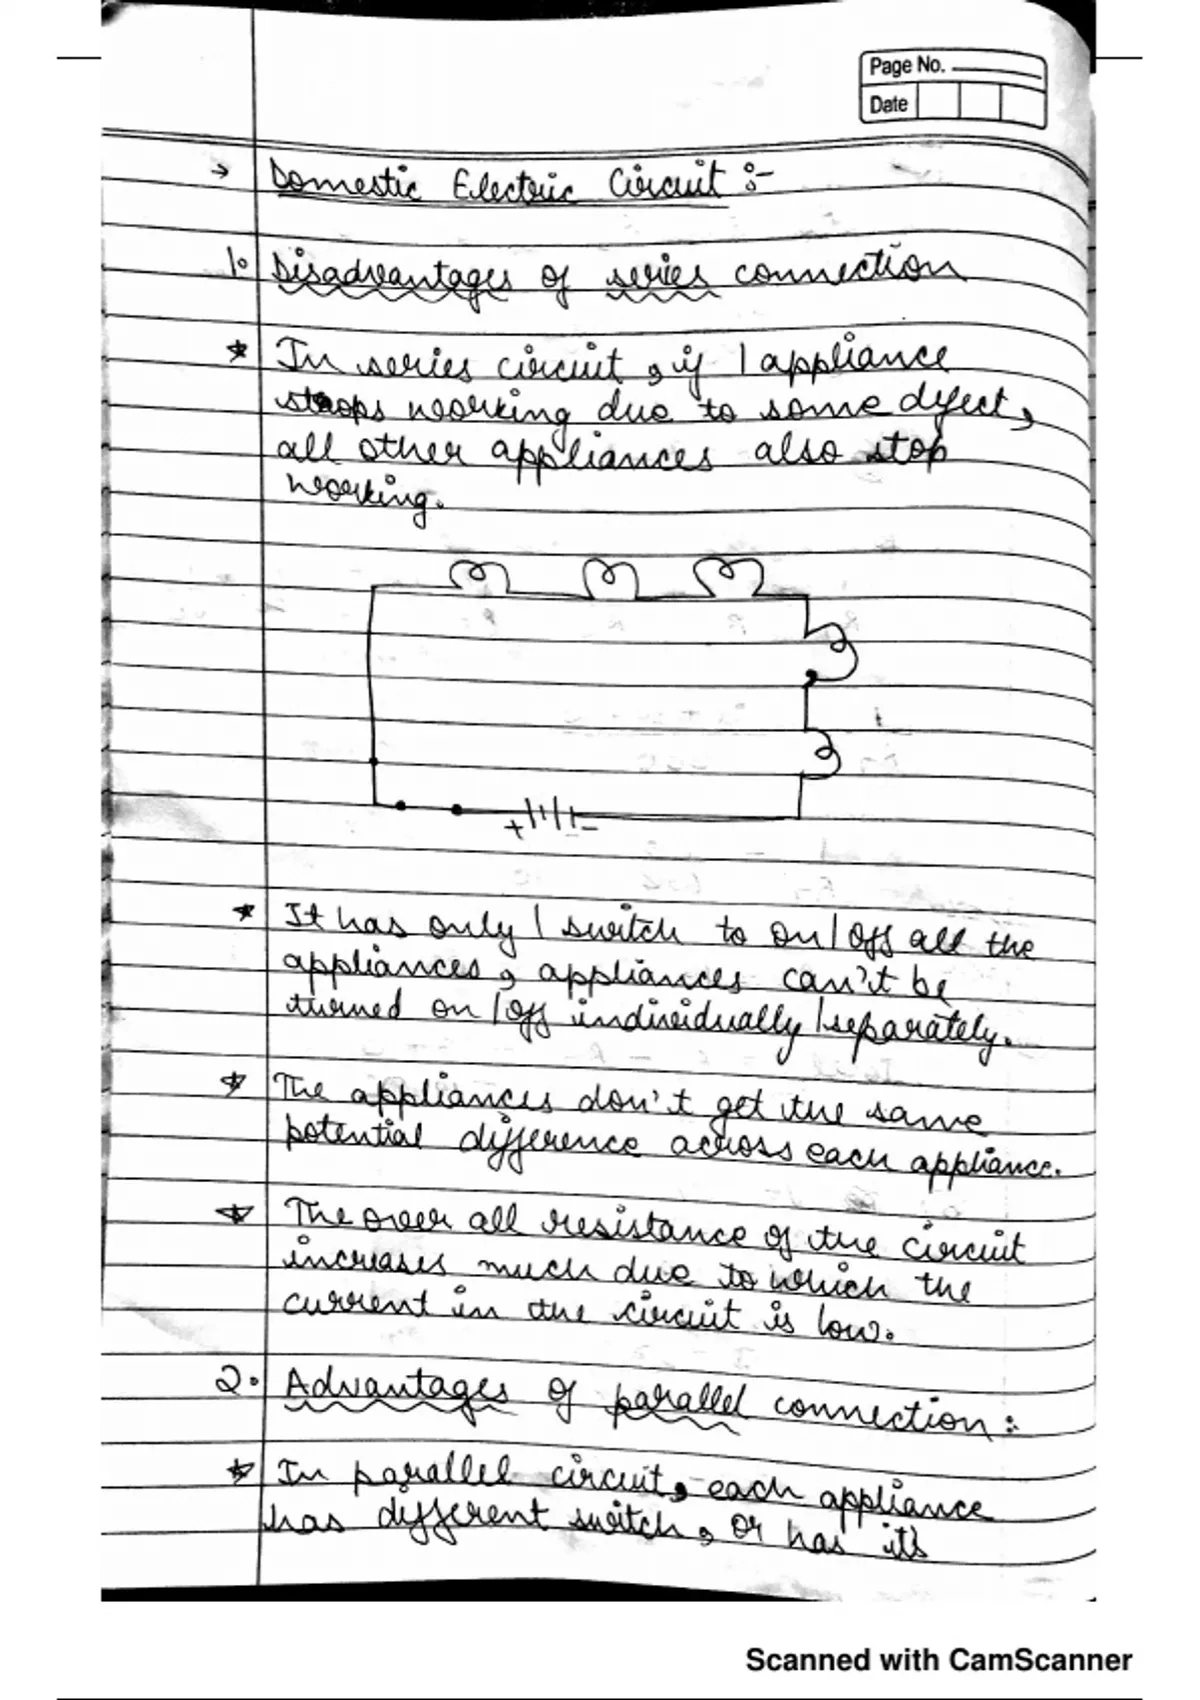 Page No.
Date
→ Domestic Electric Circuit :-
1. Disadvantages of series connection
* In series circuit, if 1 appliance
stops working due to some defect,
all other appliances also stop
working.
+ -
* It has only 1 switch to on/off all the
appliances, appliances can't be
turned on/off individually/separately.
* The appliances don't get the same
potential difference across each appliance.
* The over all resistance of the circuit
increases much due to which the
current in the circuit is low.
2. Advantages of parallel connection :
* In parallel circuit, each appliance
has different switch, or has it's
Scanned with CamScanner